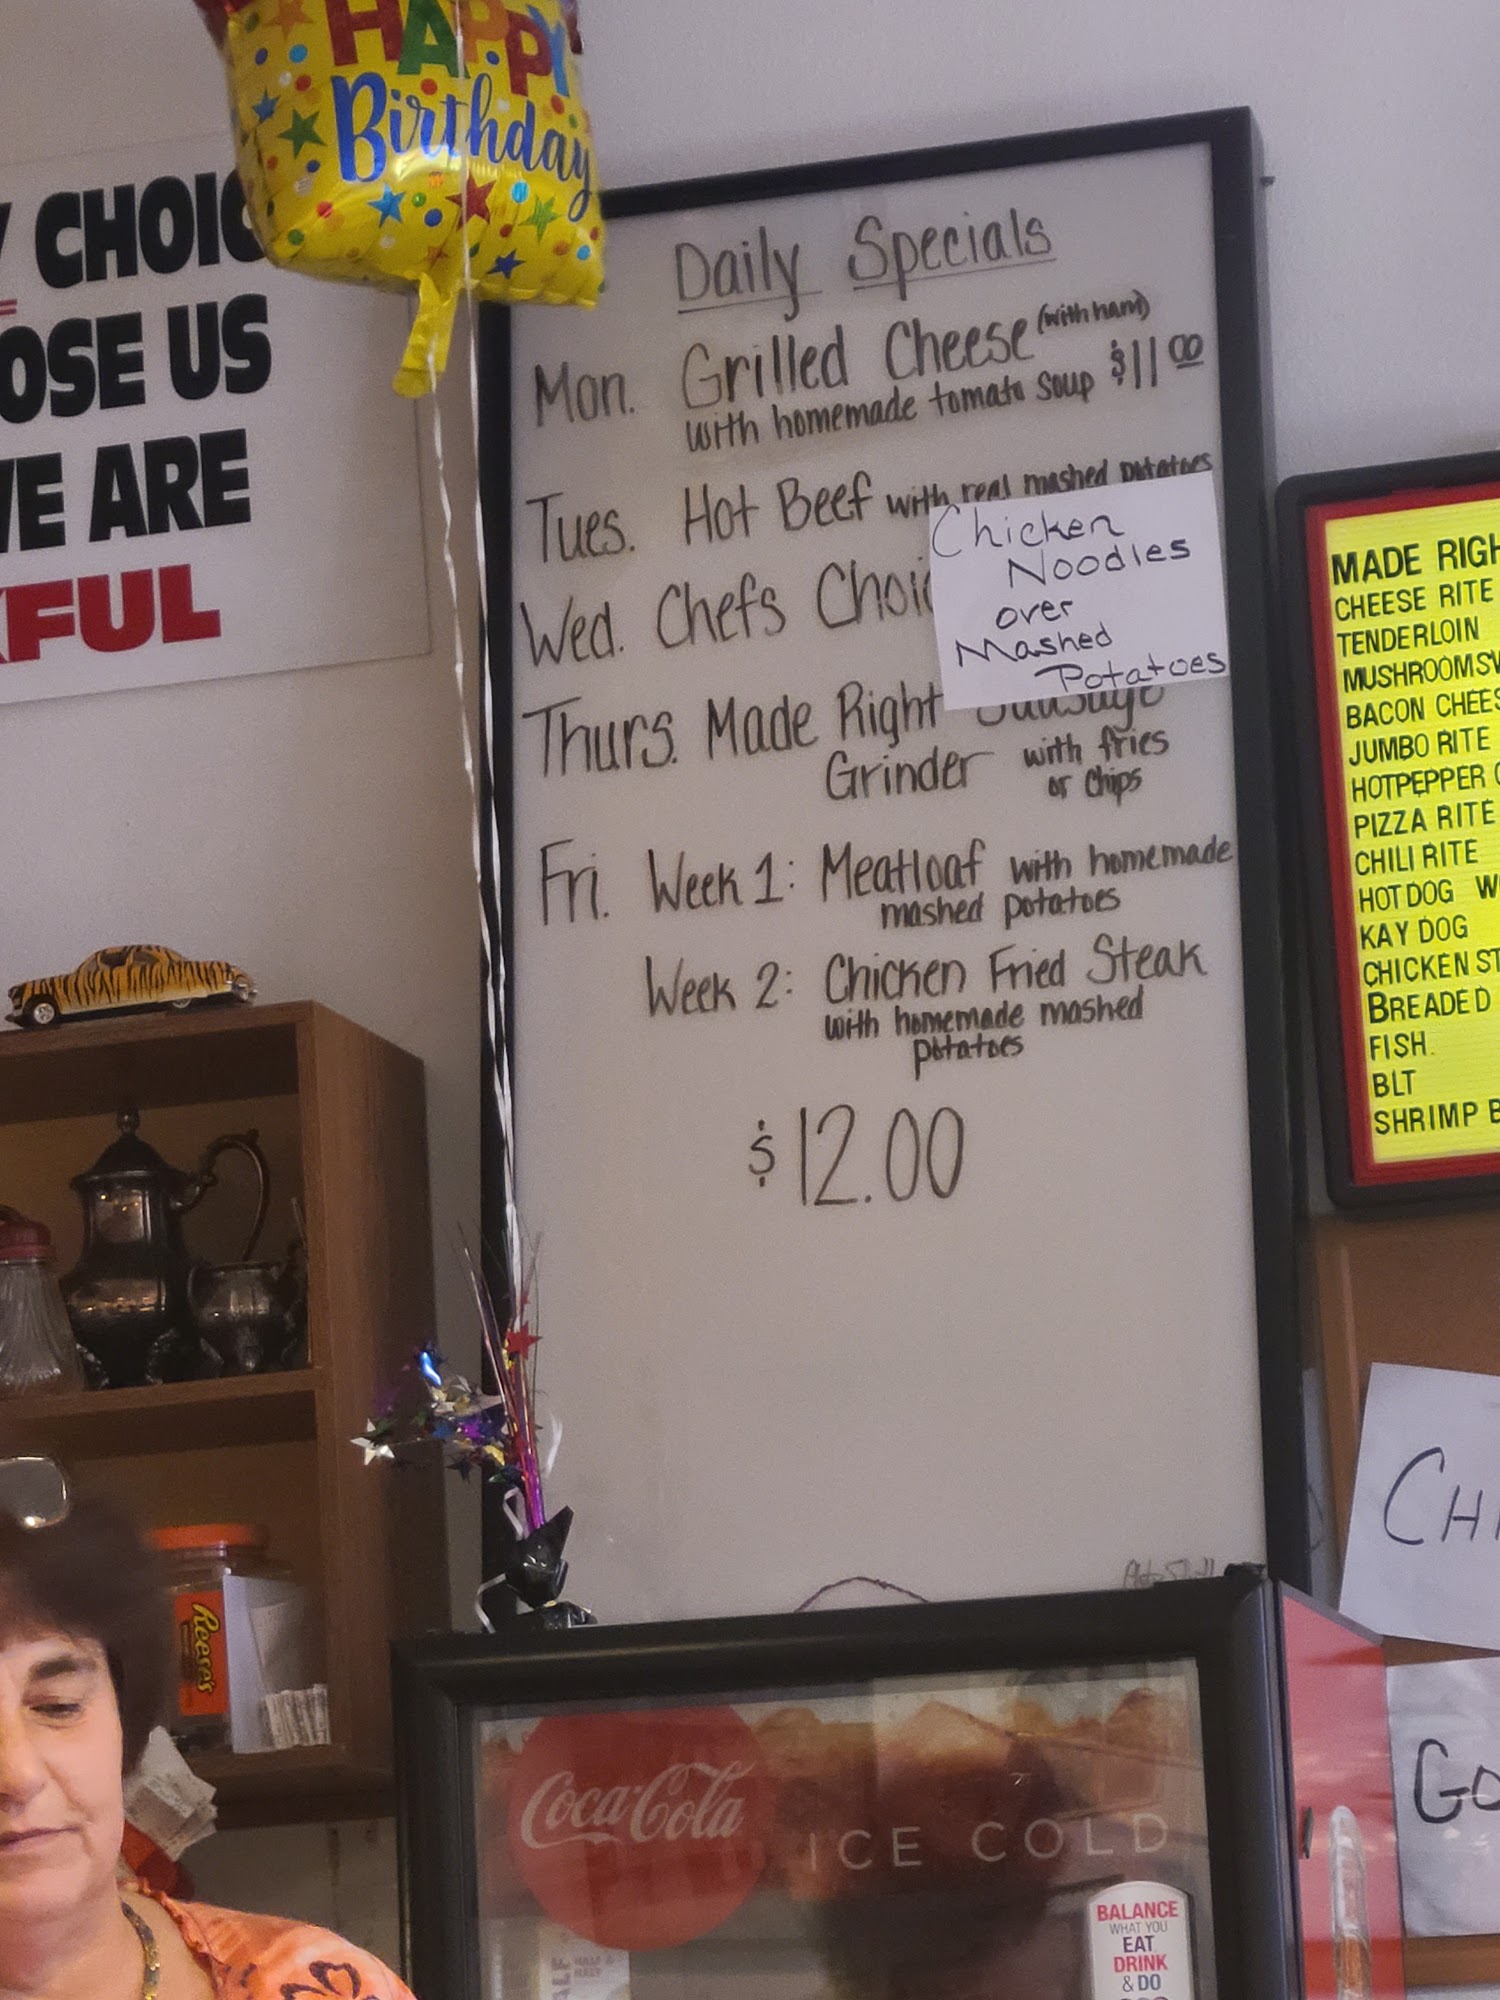 HAPPY
Birthday
CHOIC
OSE US
VE ARE
FUL
Daily Specials
Mon. Grilled Cheese (with ham)
with homemade tomato soup $11.00
Tues. Hot Beef with real mashed potatoes
Wed. Chefs Choi
Chicken
Noodles
over
Mashed
Potatoes
Thurs. Made Right Sausage
Grinder with fries
or chips
Fri. Week 1: Meatloaf with homemade
mashed potatoes
Week 2: Chicken Fried Steak
with homemade mashed
potatoes
$12.00
MADE RIGH
CHEESE RITE
TENDERLOIN
MUSHROOMSW
BACON CHEES
JUMBO RITE
HOTPEPPER
PIZZA RITE
CHILI RITE
HOT DOG W
KAY DOG
CHICKEN ST
BREADED
FISH
BLT
SHRIMP B
CHI
GO
Reese's
Coca-Cola
ICE COLD
BALANCE
WHAT YOU
EAT
DRINK
& DO
HALF &
HALF